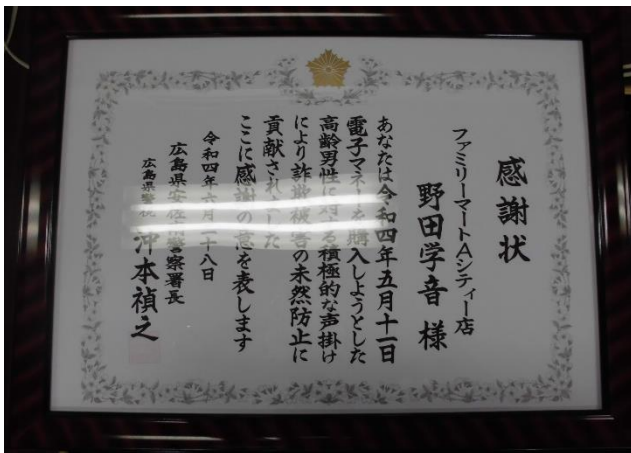 感謝状
ファミリーマートAシティー店
野田学音 様
あなたは令和四年五月十一日
電子マネーを購入しようとした
高齢男性に対する積極的な声掛け
により詐欺被害の未然防止に
貢献されました
ここに感謝の意を表します
令和四年六月二十八日
広島県安佐南警察署長
広島県警視 沖本禎之